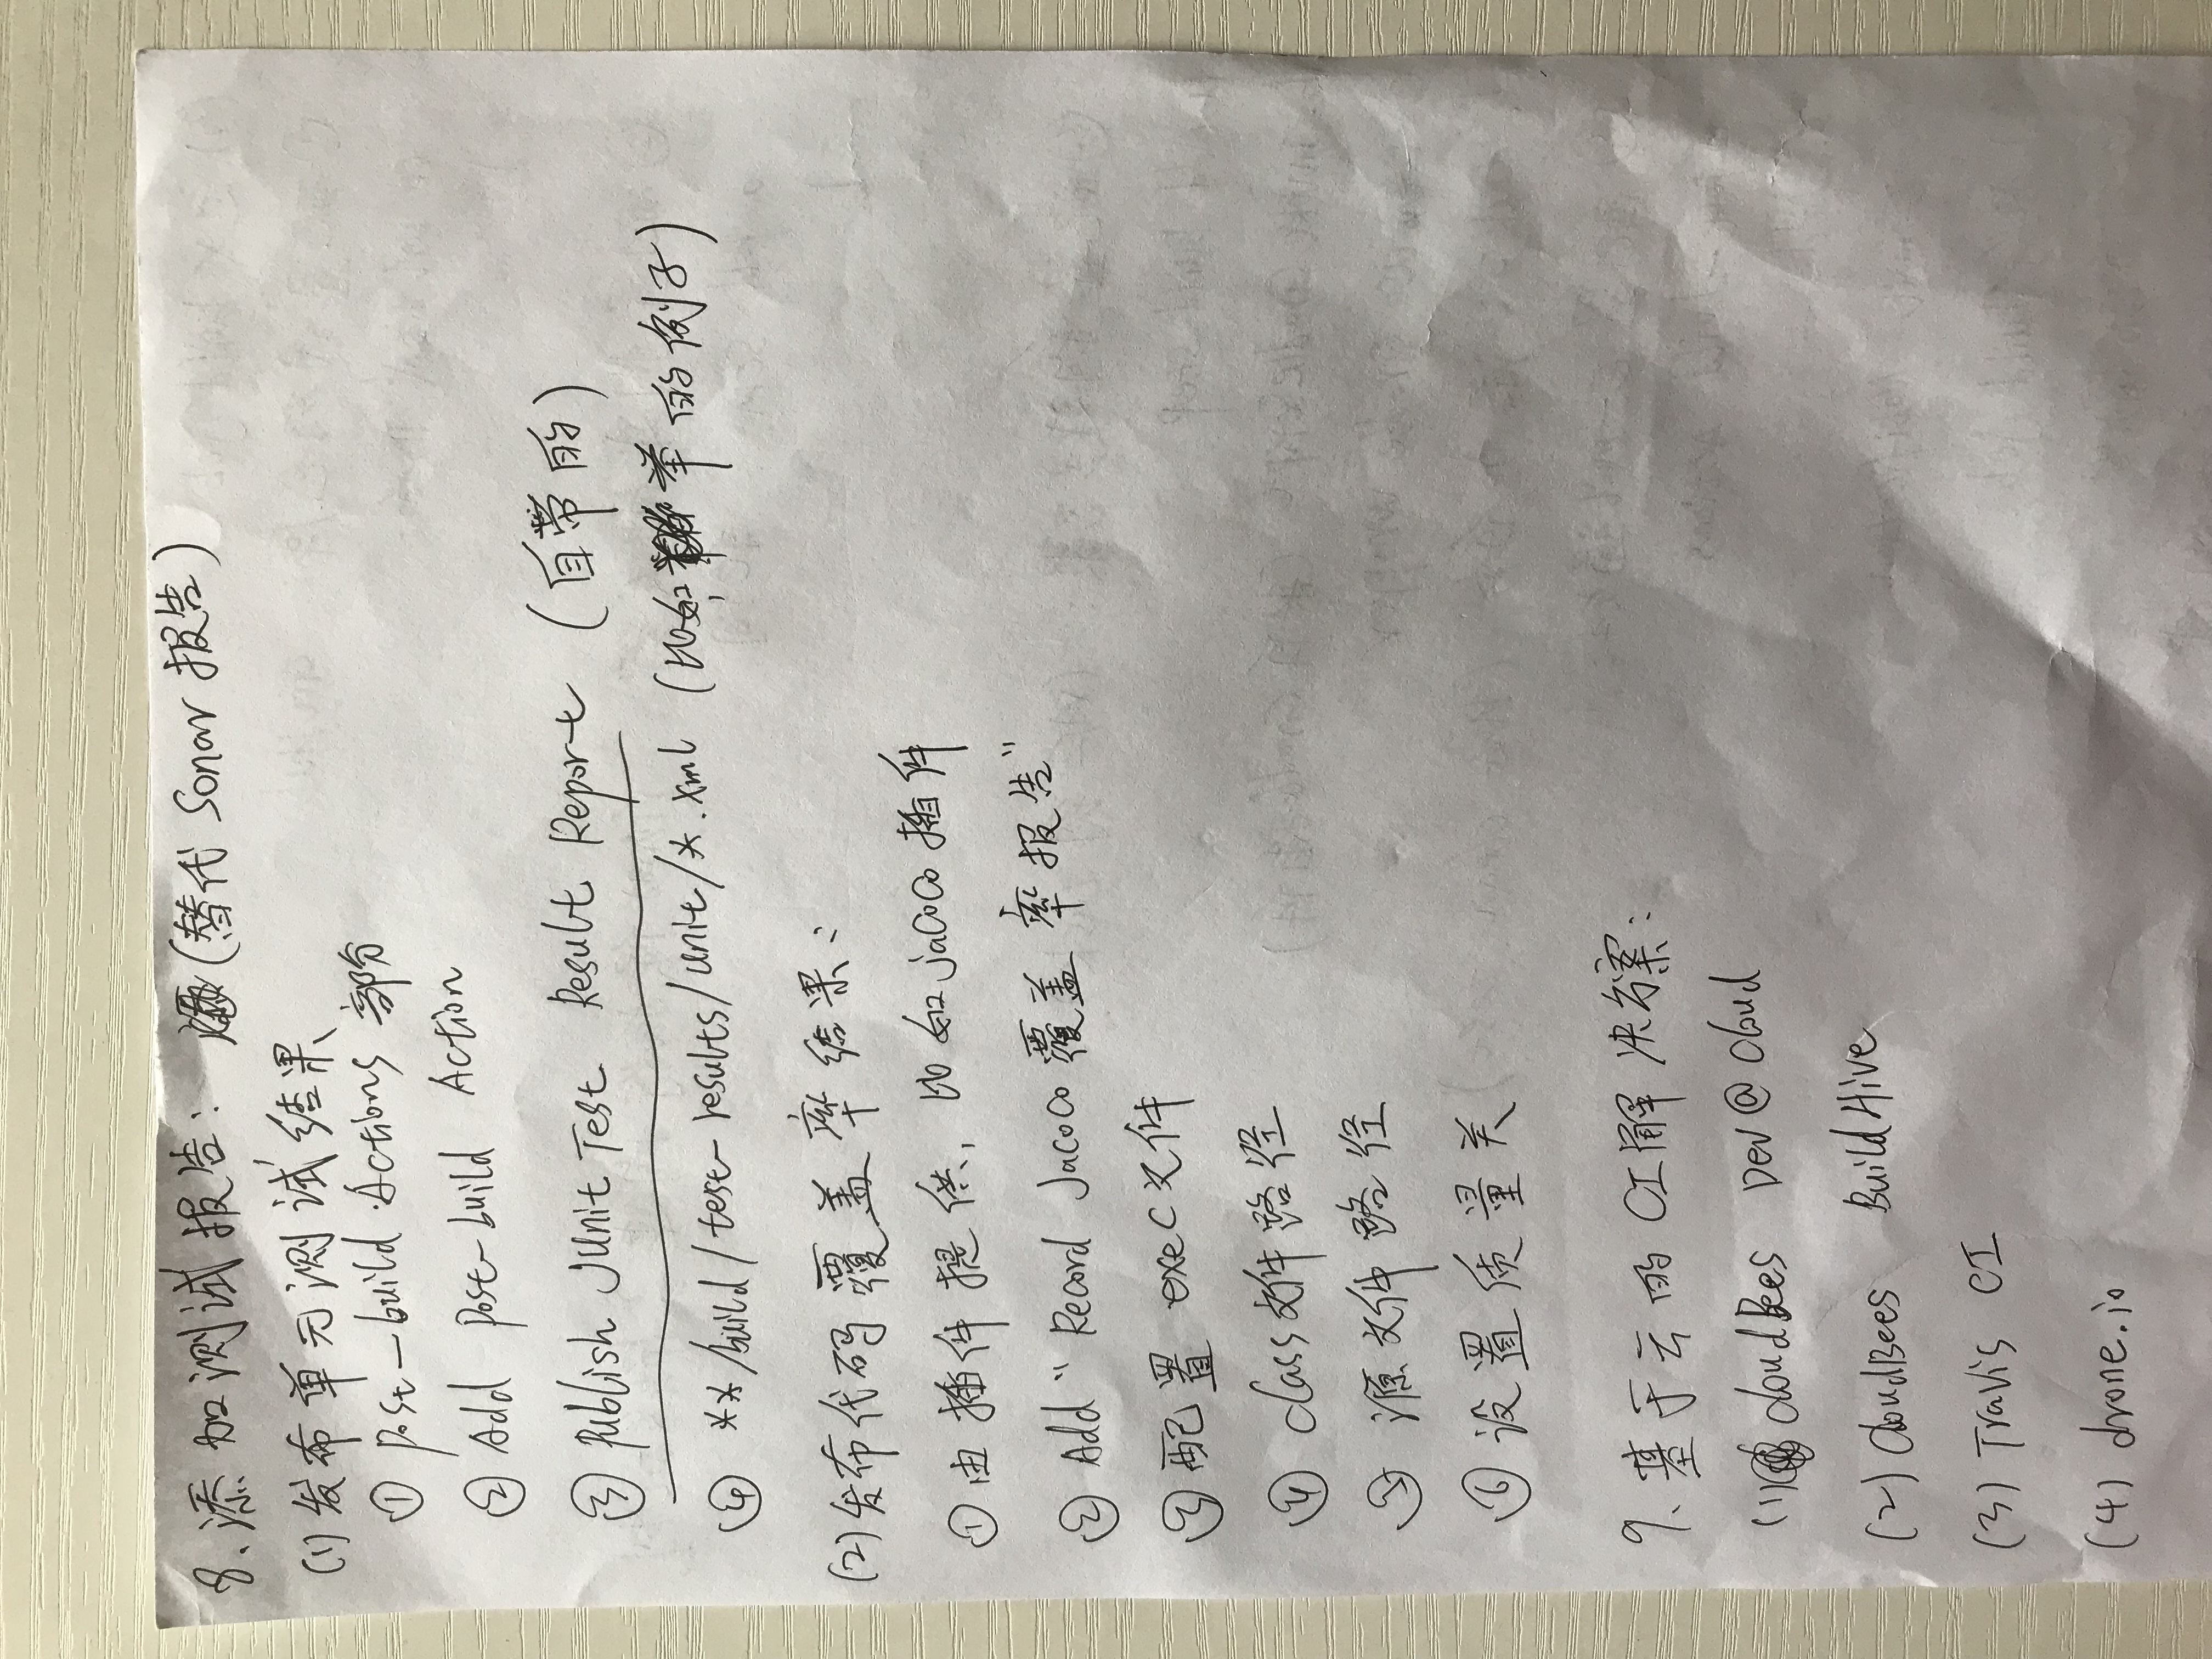 8、添加测试报告：(替代 Sonar 报告)
(1)发布单元测试结果
① Post-build Actions 部分
② Add Post-build Action
③ Publish JUnit Test Result Report (自带的)
④ **/build/test-results/unit/*.xml (比如,举的例子)
(2)发布代码覆盖率结果：
①由插件提供, 比如jacoco插件
② Add “Record Jacoco覆盖率报告”
③配置 exec文件
④ class文件路径
⑤ 源文件路径
⑥ 设置质量关
9、基于云的 CI解决方案：
(1) CloudBees Dev@Cloud
(2) CloudBees BuildHive
(3) Travis CI
(4) drone.io